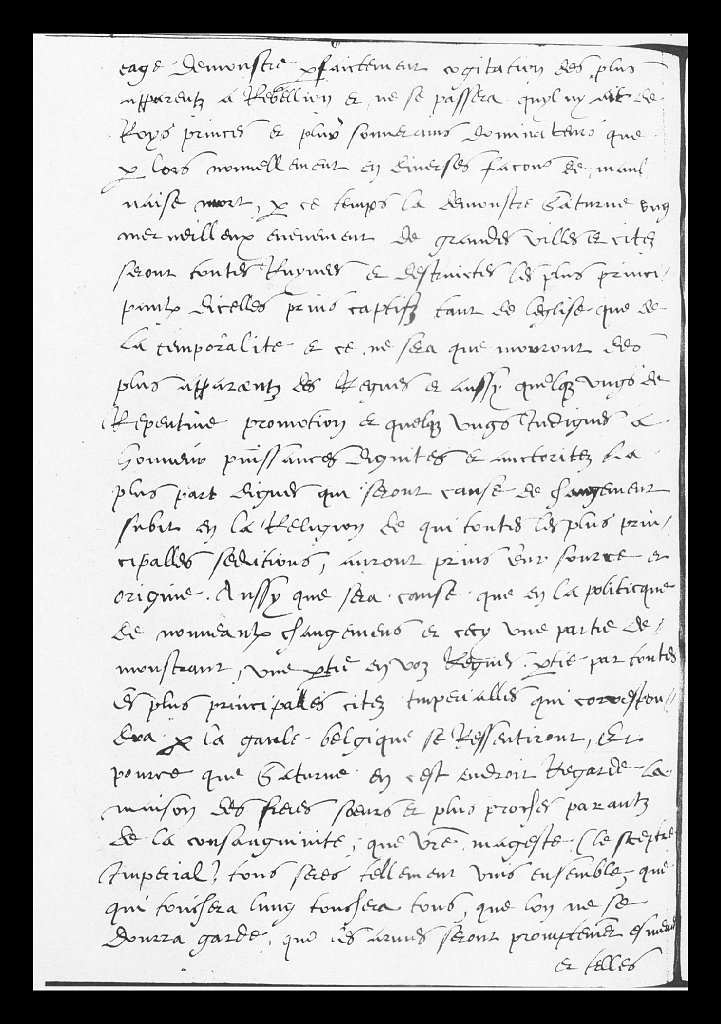 eage demonstre pfaictement cogitation des plus
apparentz a Rebellion et ne se passera quyl ny ait de
Roys princes et plus souverains dominateurs que
p lors nouvellement en diverses facons de maul
vaise mort, p ce temps la demonstre Saturne ung
merveilleux evenement de grandes villes et citez
seront toutes Ruynees et destruictes les plus princi-
paulx dicelles prins captifz tant de leglise que de
la temporalite et ce ne sera que mouront des
plus apparentz des Regnes et aussy quelqz ungs de
Repentine promotion et quelqz ungs Indignes a
honneur puissances dignites et auctoritez la
plus part dignes qui seront cause de changement
subit en la Religion de qui toutes les plus prin-
cipalles seditions, auront prins leur source et
origine. Aussy que sera cause que en la politicque
de nouveaulx changemens et cecy une partie de-
monstrant, une ptie en voz Regnes ptie par toutes
les plus principalles citez Imperialles qui correspon-
dra p la gaule belgique se Ressentiront, Et
pource que Saturne en cest endroit Regarde la
maison des freres soeurs et plus proches parantz
de la consanguinite, que vre mageste (le sceptre
Imperial) tous seres tellement unis ensemble que
qui touchera lung touchera tous, que lon ne se
dourra garde, que les armes seront promptement esmeues
et telles